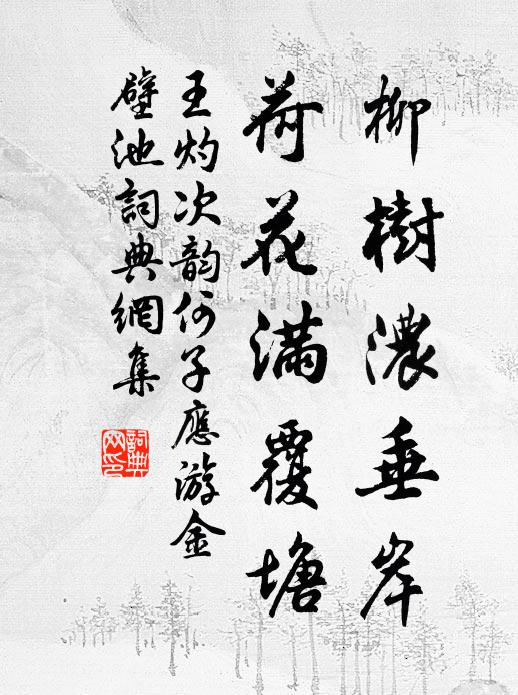 柳樹濃垂岸
荷花滿覆塘
王灼次韵何子應游金
壁池詞典網集
詞典網印